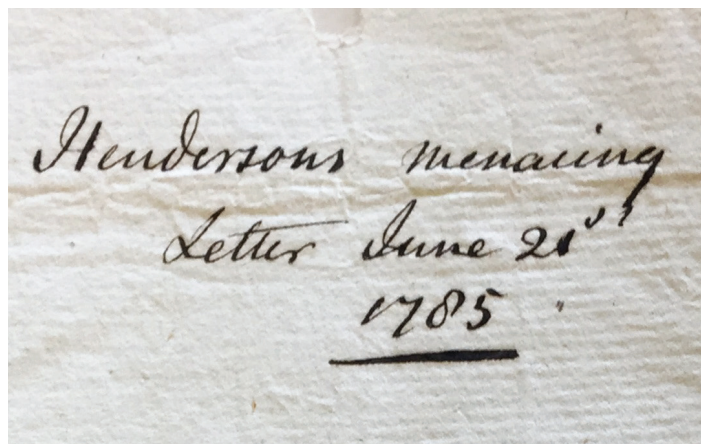 Hendersons menacing
Letter June 21st
1785